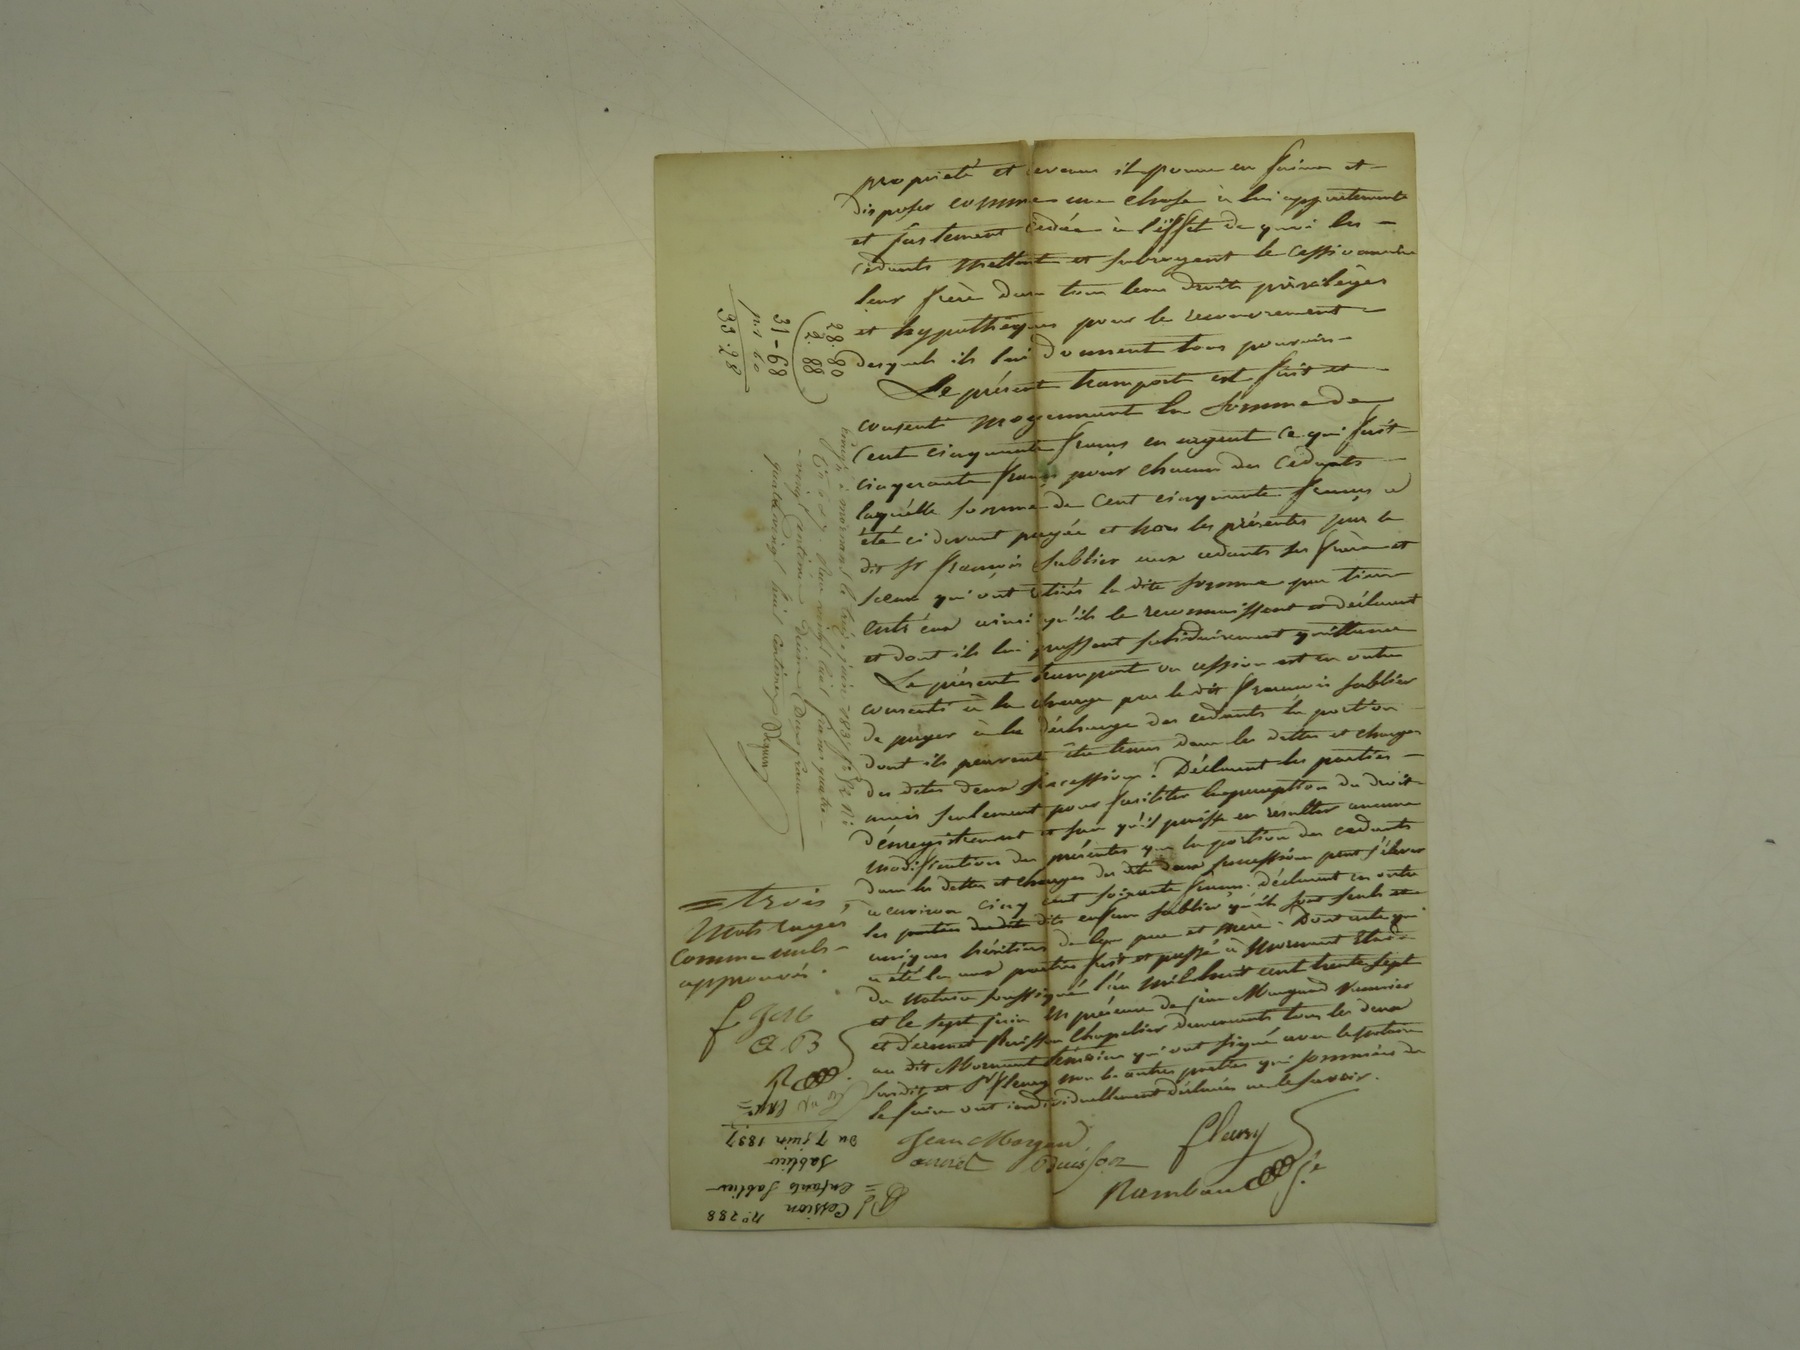 propriété et devenu il pourra en faire et
disposer comme une chose à lui appartenante
et justement cédée à l'effet de quoi les
cédants mettent et subrogent le cessionnaire
leur frère dans tous leurs droits privilèges
et hypothèques pour le recouvrement
desquels ils lui donnent tous pouvoirs
Le présent transport est fait et
consenti moyennant la somme de
Cent cinquante francs en argent ce qui fait
cinquante francs pour chacun des Cédants
laquelle somme de Cent cinquante francs a
été ci devant payée et hors les présentes par le
dit Sr françois Sablier aux cédants ses frère et
soeur qui ont retirés la dite somme par tiers
entr'eux ainsi qu'ils le reconnaissent et déclarent
et dont ils lui passent solidairement quittance
Le présent transport ou cession est en outre
consenti à la charge par le dit françois Sablier
de payer à la décharge des cédants la portion
dont ils peuvent être tenus dans les dettes et charges
des dites deux successions. Déclarent les parties
mais seulement pour faciliter la perception du droit
d'enregistrement et sans qu'il puisse en résulter aucune
modification des présentes que la portion des cédants
dans les dettes et charges des dites deux successions peut s'élever
a environ cinq cent soixante francs. Déclarent en outre
les parties dits enfans Sablier qu'ils sont seuls et
uniques héritiers de leur père et mère. Dont acte qui
a été lu aux parties fait et passé à Mornant Etude
du Notaire soussigné l'an mil huit cent trente sept
et le sept juin en présence de jean Mongand
et d'ennet Buisson Chapelier demeurants tous les deux
au dit Mornant témoins qui ont signé avec le Notaire
susdit et Sr fleury non les autres parties qui sommées de
le faire ont individuellement déclarées ne le savoir.
fleury
Buisson
28.80
2.88
31-68
60
33.28
Enregé à mornant le treize juin 1837 fo 82 Ro
Reçu vingt huit francs quatre
vingt centimes décime deux francs
quatre vingt huit centimes
= trois
Mots rayés
Comme nuls
approuvés.
No. 288
Cession
= enfants Sablier
Sablier
Du 7 juin 1837